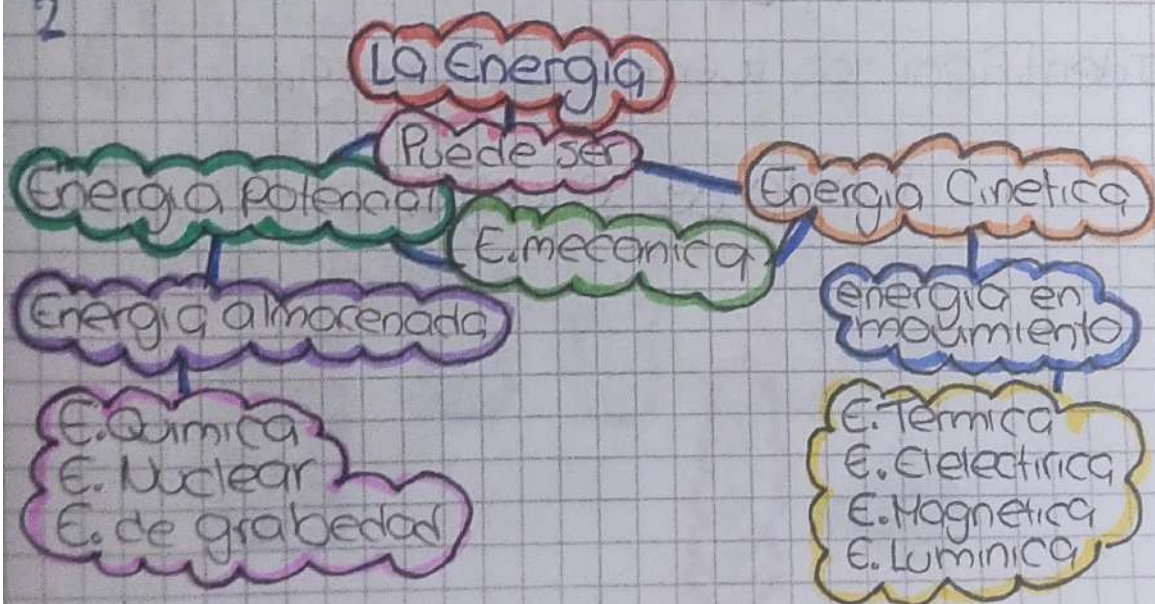 2
La Energia
Puede ser
Energia potencial
Energia Cinetica
E.mecanica
Energia almacenada
energia en
movimiento
E.Quimica
E. Nuclear
E. de grabedad
E. Termica
E. Elelectirica
E.Magnetica
E. Luminica